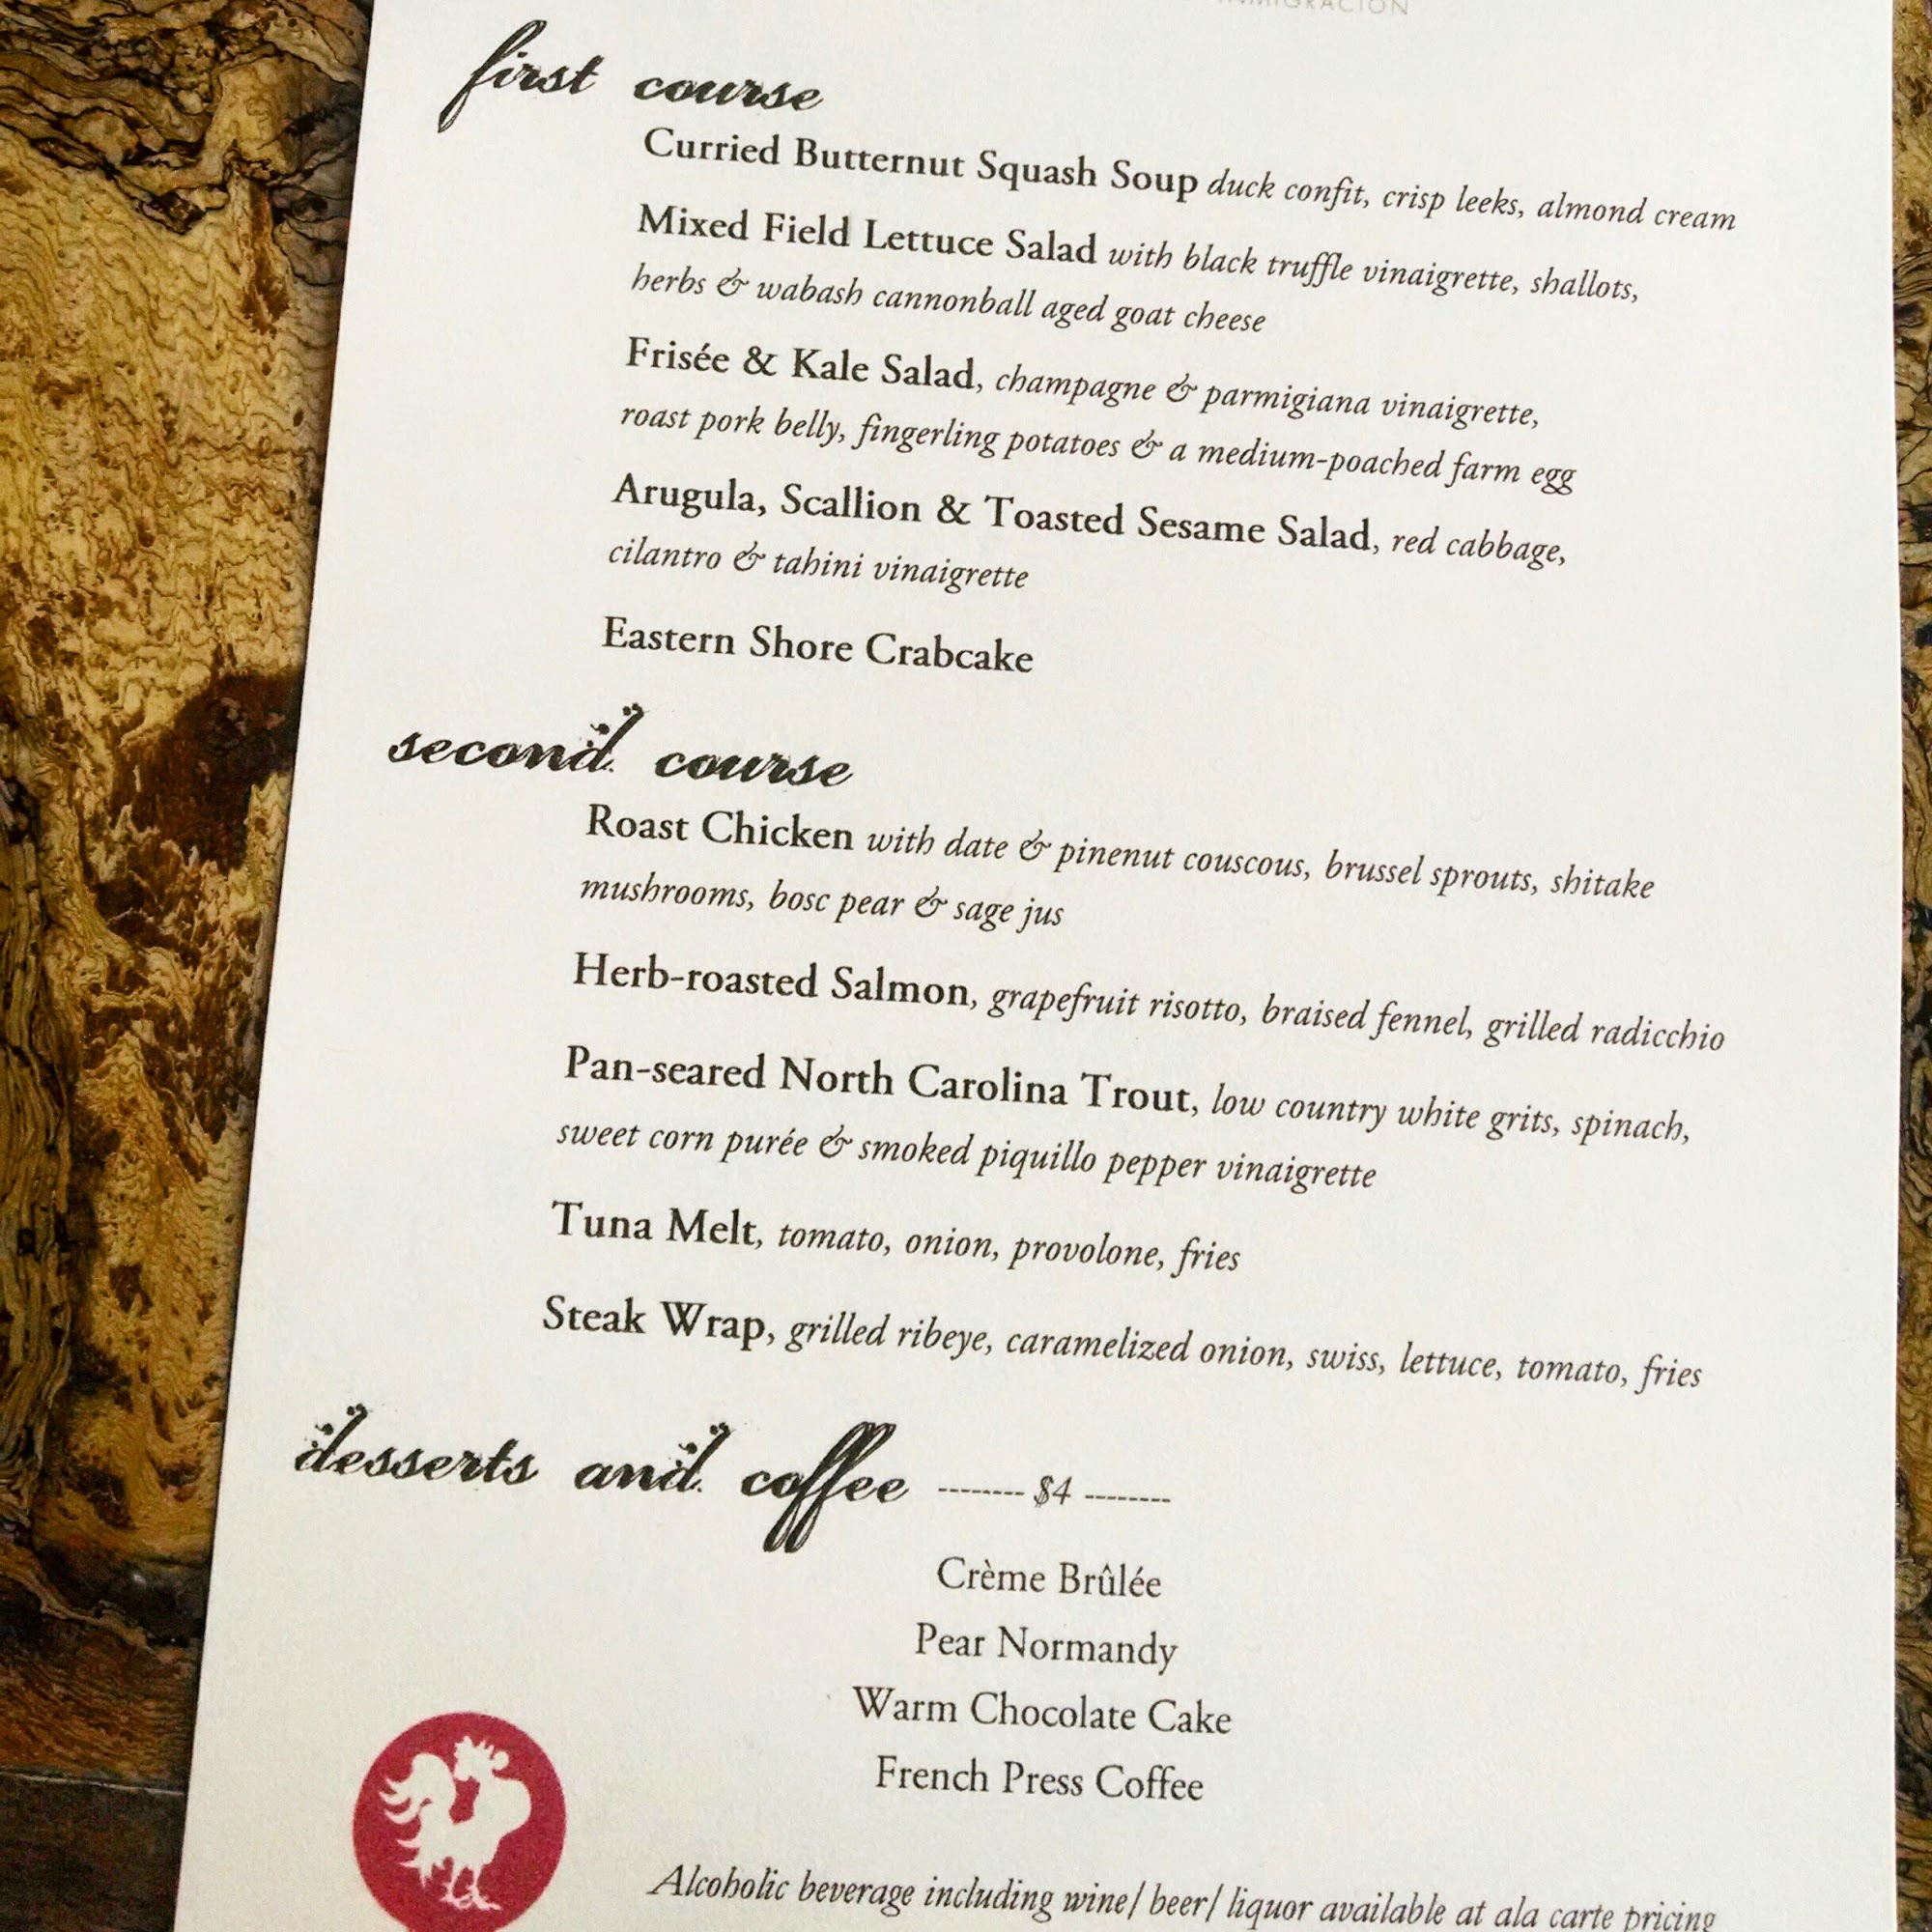 INMIGRACIÓN
first course
Curried Butternut Squash Soup duck confit, crisp leeks, almond cream
Mixed Field Lettuce Salad with black truffle vinaigrette, shallots,
herbs & wabash cannonball aged goat cheese
Frisée & Kale Salad, champagne & parmigiana vinaigrette,
roast pork belly, fingerling potatoes & a medium-poached farm egg
Arugula, Scallion & Toasted Sesame Salad, red cabbage,
cilantro & tahini vinaigrette
Eastern Shore Crabcake
second course
Roast Chicken with date & pinenut couscous, brussel sprouts, shitake
mushrooms, bosc pear & sage jus
Herb-roasted Salmon, grapefruit risotto, braised fennel, grilled radicchio
Pan-seared North Carolina Trout, low country white grits, spinach,
sweet corn purée & smoked piquillo pepper vinaigrette
Tuna Melt, tomato, onion, provolone, fries
Steak Wrap, grilled ribeye, caramelized onion, swiss, lettuce, tomato, fries
desserts and coffee -------- $4 --------
Crème Brûlée
Pear Normandy
Warm Chocolate Cake
French Press Coffee
Alcoholic beverage including wine/ beer/ liquor available at ala carte pricing